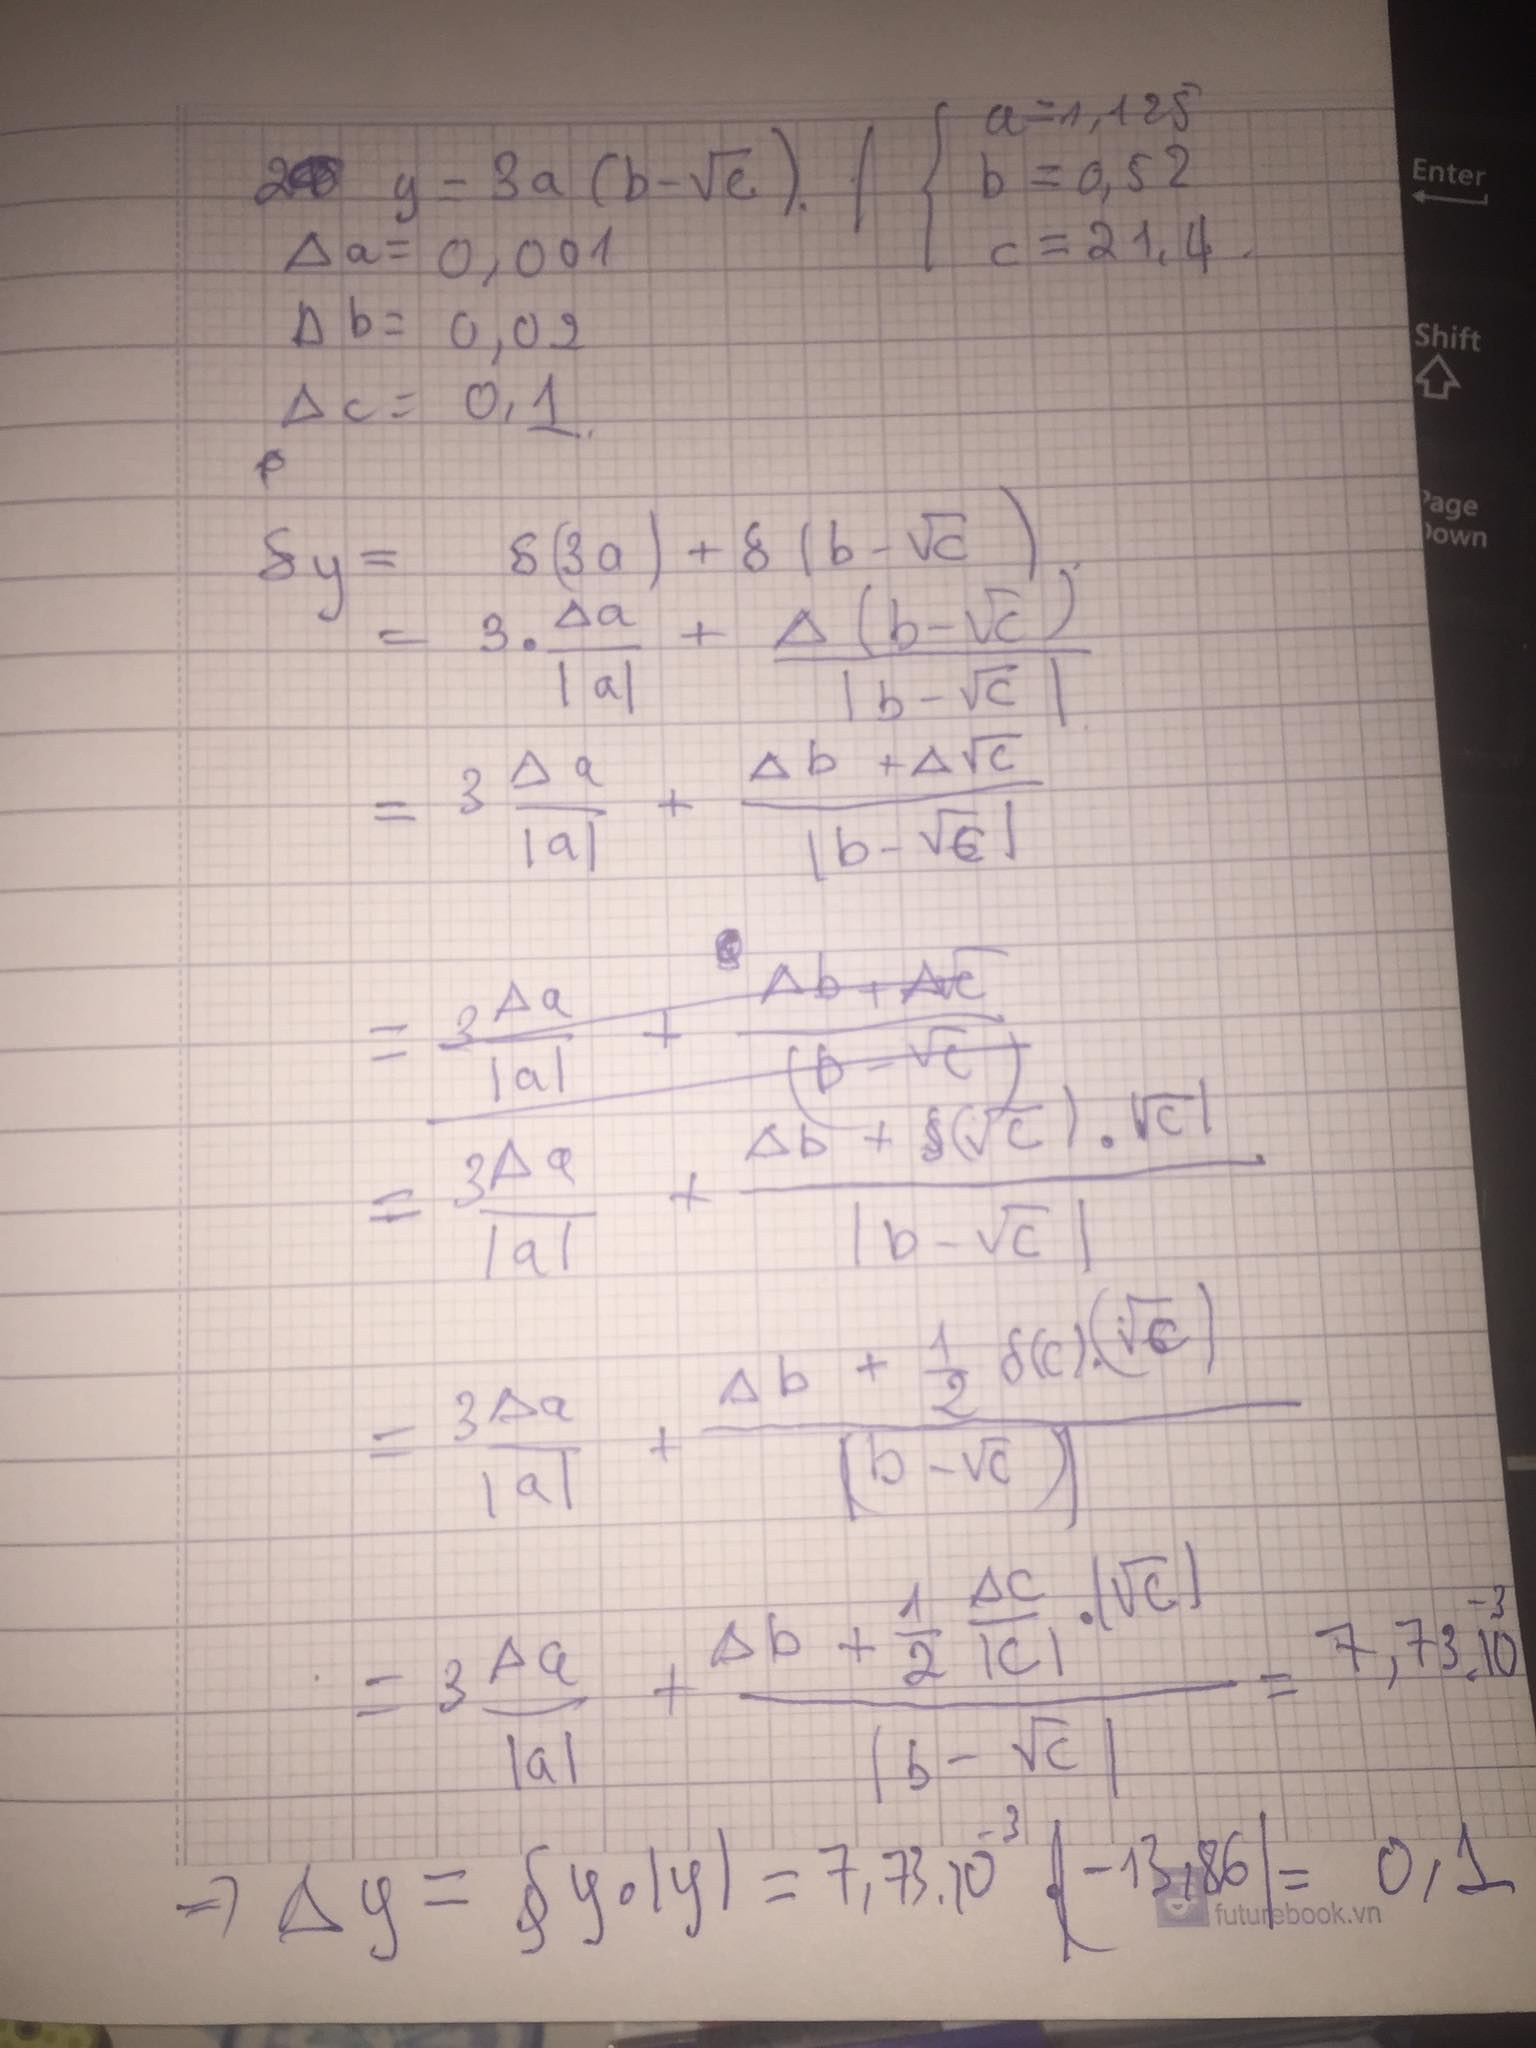 y = 3a (b-√c). / { a=1,125
b = 0,52
c = 21,4.
Δa = 0,001
Δb = 0,02
Δc = 0,1.
δy = δ(3a) + δ(b-√c).
= 3. Δa/|a| + Δ(b-√c)/|b-√c|
= 3 Δa/|a| + (Δb + Δ√c)/|b-√c|
= 3 Δa/|a| + (Δb + Δ√c)/(b-√c)
= 3Δa/|a| + (Δb + δ(√c).√c|)/|b-√c|
= 3Δa/|a| + (Δb + 1/2 δ(c).(√c))/|b-√c|
= 3 Δa/|a| + (Δb + 1/2 Δc/|c| .|√c|)/|b-√c| = 7,73.10⁻³
=> Δy = δy.|y| = 7,73.10⁻³.|-13,86| = 0,1
futurebook.vn
Enter
Shift
Page
Down